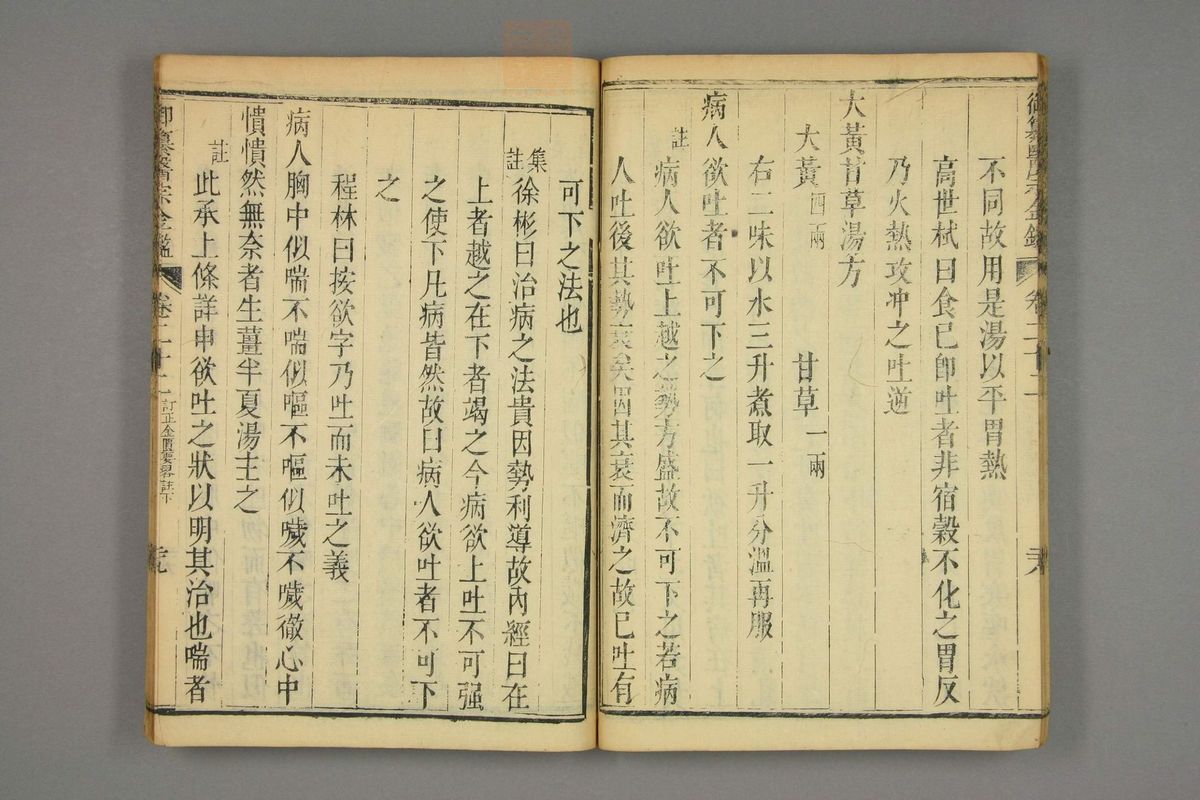 御纂醫宗金鑑 卷二十二 三十八
不同故用是湯以平胃熱
高世栻曰食已卽吐者非宿穀不化之胃反
乃火熱攻冲之吐逆
大黃甘草湯方
大黃四兩 甘草一兩
右二味以水三升煮取一升分溫再服
病人欲吐者不可下之
註病人欲吐上越之勢方盛故不可下之若病
人吐後其勢衰矣因其衰而濟之故已吐有
可下之法也
集註徐彬曰治病之法貴因勢利導故內經曰在
上者越之在下者竭之今病欲上吐不可强
之使下凡病皆然故曰病人欲吐者不可下
之
程林曰按欲字乃吐而未吐之義
病人胸中似喘不喘似嘔不嘔似噦不噦徹心中
憒憒然無奈者生薑半夏湯主之
註此承上條詳申欲吐之狀以明其治也喘者
御纂醫宗金鑑 卷二十二 訂正金匱要畧註下 三十九